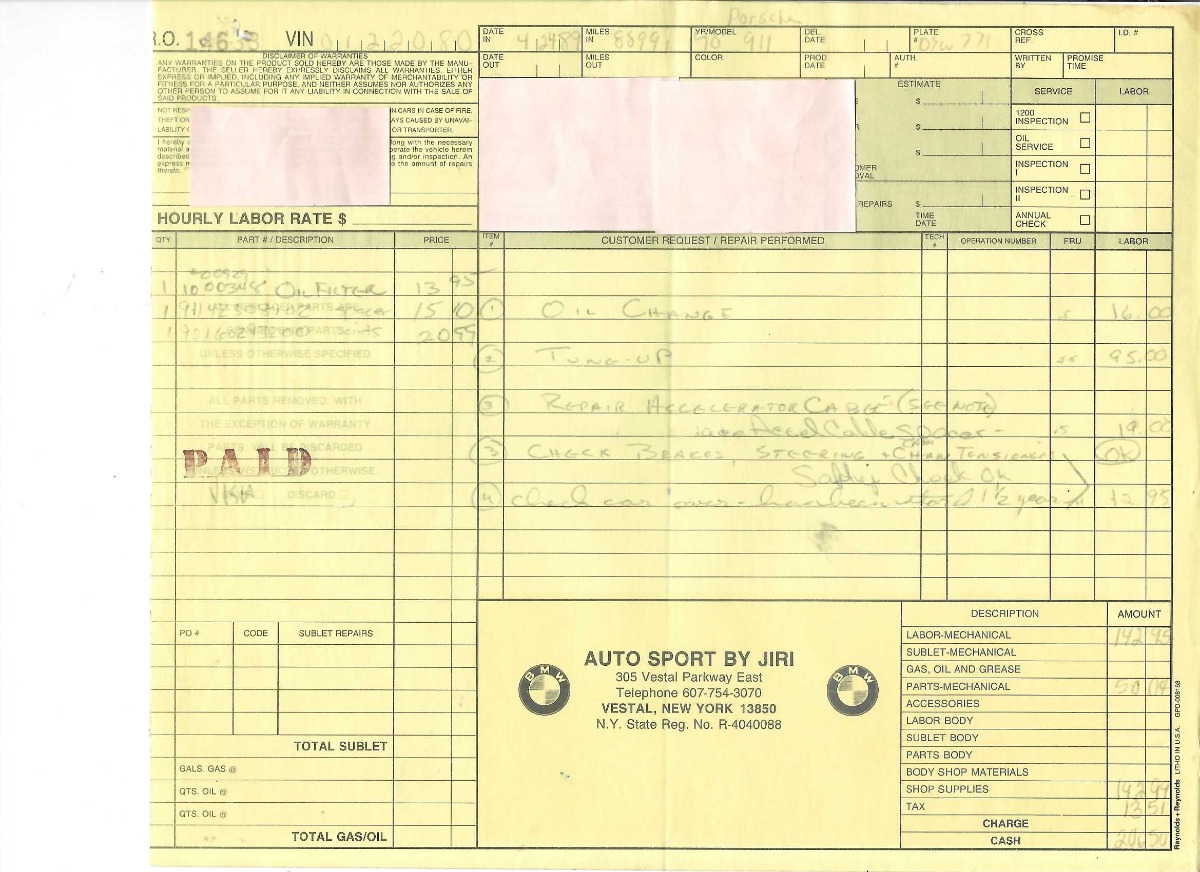 Porsche
R.O. 14633 VIN 0122080 DATE IN 4 24 89 MILES IN 8899 YR/MODEL 70 911 DEL. DATE PLATE DYW 771 CROSS REF. I.D. #
DATE OUT MILES OUT COLOR PROD. DATE AUTH. # WRITTEN BY PROMISE TIME
DISCLAIMER OF WARRANTIES
ANY WARRANTIES ON THE PRODUCT SOLD HEREBY ARE THOSE MADE BY THE MANU-
FACTURER. THE SELLER HEREBY EXPRESSLY DISCLAIMS ALL WARRANTIES, EITHER
EXPRESS OR IMPLIED, INCLUDING ANY IMPLIED WARRANTY OF MERCHANTABILITY OR
FITNESS FOR A PARTICULAR PURPOSE, AND NEITHER ASSUMES NOR AUTHORIZES ANY
OTHER PERSON TO ASSUME FOR IT ANY LIABILITY IN CONNECTION WITH THE SALE OF
SAID PRODUCTS.
NOT RESP IN CARS IN CASE OF FIRE,
THEFT OR AYS CAUSED BY UNAVAI-
LABILITY O OR TRANSPORTER.
I hereby a long with the necessary
material a perate the vehicle herein
described g and/or inspection. An
express m e the amount of repairs
thereto.
HOURLY LABOR RATE $
ESTIMATE
$
$
$
OMER
OVAL
REPAIRS $
TIME
DATE
SERVICE LABOR
1200 INSPECTION
OIL SERVICE
INSPECTION I
INSPECTION II
ANNUAL CHECK
QTY PART # / DESCRIPTION PRICE ITEM # CUSTOMER REQUEST / REPAIR PERFORMED TECH # OPERATION NUMBER FRU LABOR
1 1000348 OIL FILTER 13 95
1 15 10
1 20 99
1 OIL CHANGE 16.00
UNLESS OTHERWISE SPECIFIED
2 TUNE-UP 95.00
ALL PARTS REMOVED, WITH
3 REPAIR ACCELERATOR CABLE (SEE NOTE)
THE EXCEPTION OF WARRANTY
Accel Cable Spacer - 19.00
PARTS WILL BE DISCARDED
3 CHECK BRAKES, STEERING + CHAIN TENSIONERS OK
PAID
UNLESS INSTRUCTED OTHERWISE
Safty Check OK
VISA DISCARD
4 Check car over - has been stored 1 1/2 year 12.95
PO # CODE SUBLET REPAIRS
TOTAL SUBLET
GALS. GAS @
QTS. OIL @
QTS. OIL @
TOTAL GAS/OIL
BMW
AUTO SPORT BY JIRI
305 Vestal Parkway East
Telephone 607-754-3070
VESTAL, NEW YORK 13850
N.Y. State Reg. No. R-4040088
BMW
DESCRIPTION AMOUNT
LABOR-MECHANICAL 142 95
SUBLET-MECHANICAL
GAS, OIL AND GREASE
PARTS-MECHANICAL 50 04
ACCESSORIES
LABOR BODY
SUBLET BODY
PARTS BODY
BODY SHOP MATERIALS
SHOP SUPPLIES 192 99
TAX 13 51
CHARGE
CASH 206 50
Reynolds + Reynolds LITHO IN U.S.A.